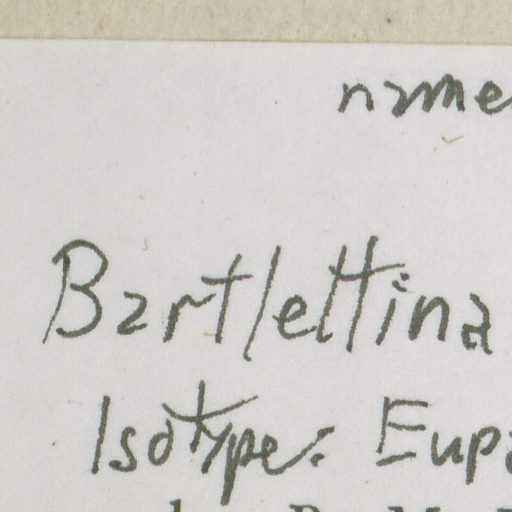 name
Bartlettina
Isotype: Eupa